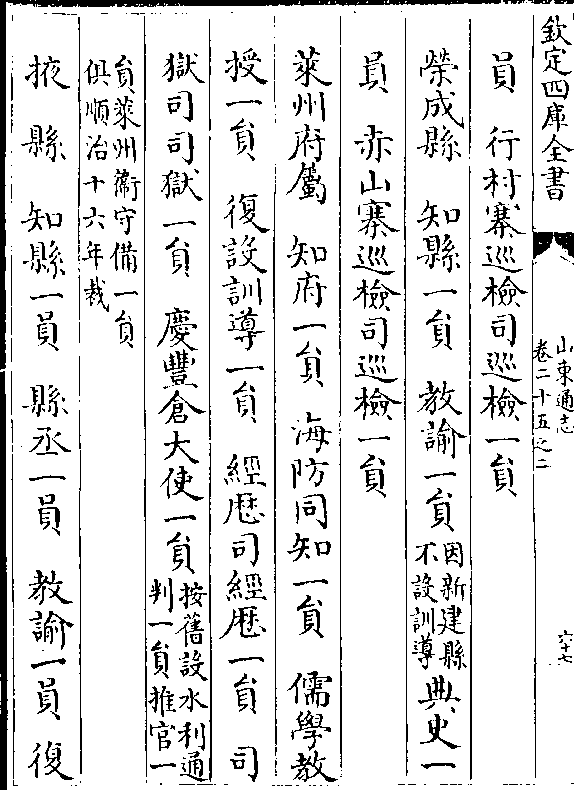 欽定四庫全書
山東通志
卷二十五之二
六十七
員 行村寨巡檢司巡檢一員
榮成縣 知縣一員 教諭一員因新建縣
不設訓導典史一
員 赤山寨巡檢司巡檢一員
萊州府屬 知府一員 海防同知一員 儒學教
授一員 復設訓導一員 經歷司經歷一員 司
獄司司獄一員 慶豐倉大使一員按舊設水利通
判一員推官一
員萊州衛守備一員
俱順治十六年裁
掖縣 知縣一員 縣丞一員 教諭一員 復